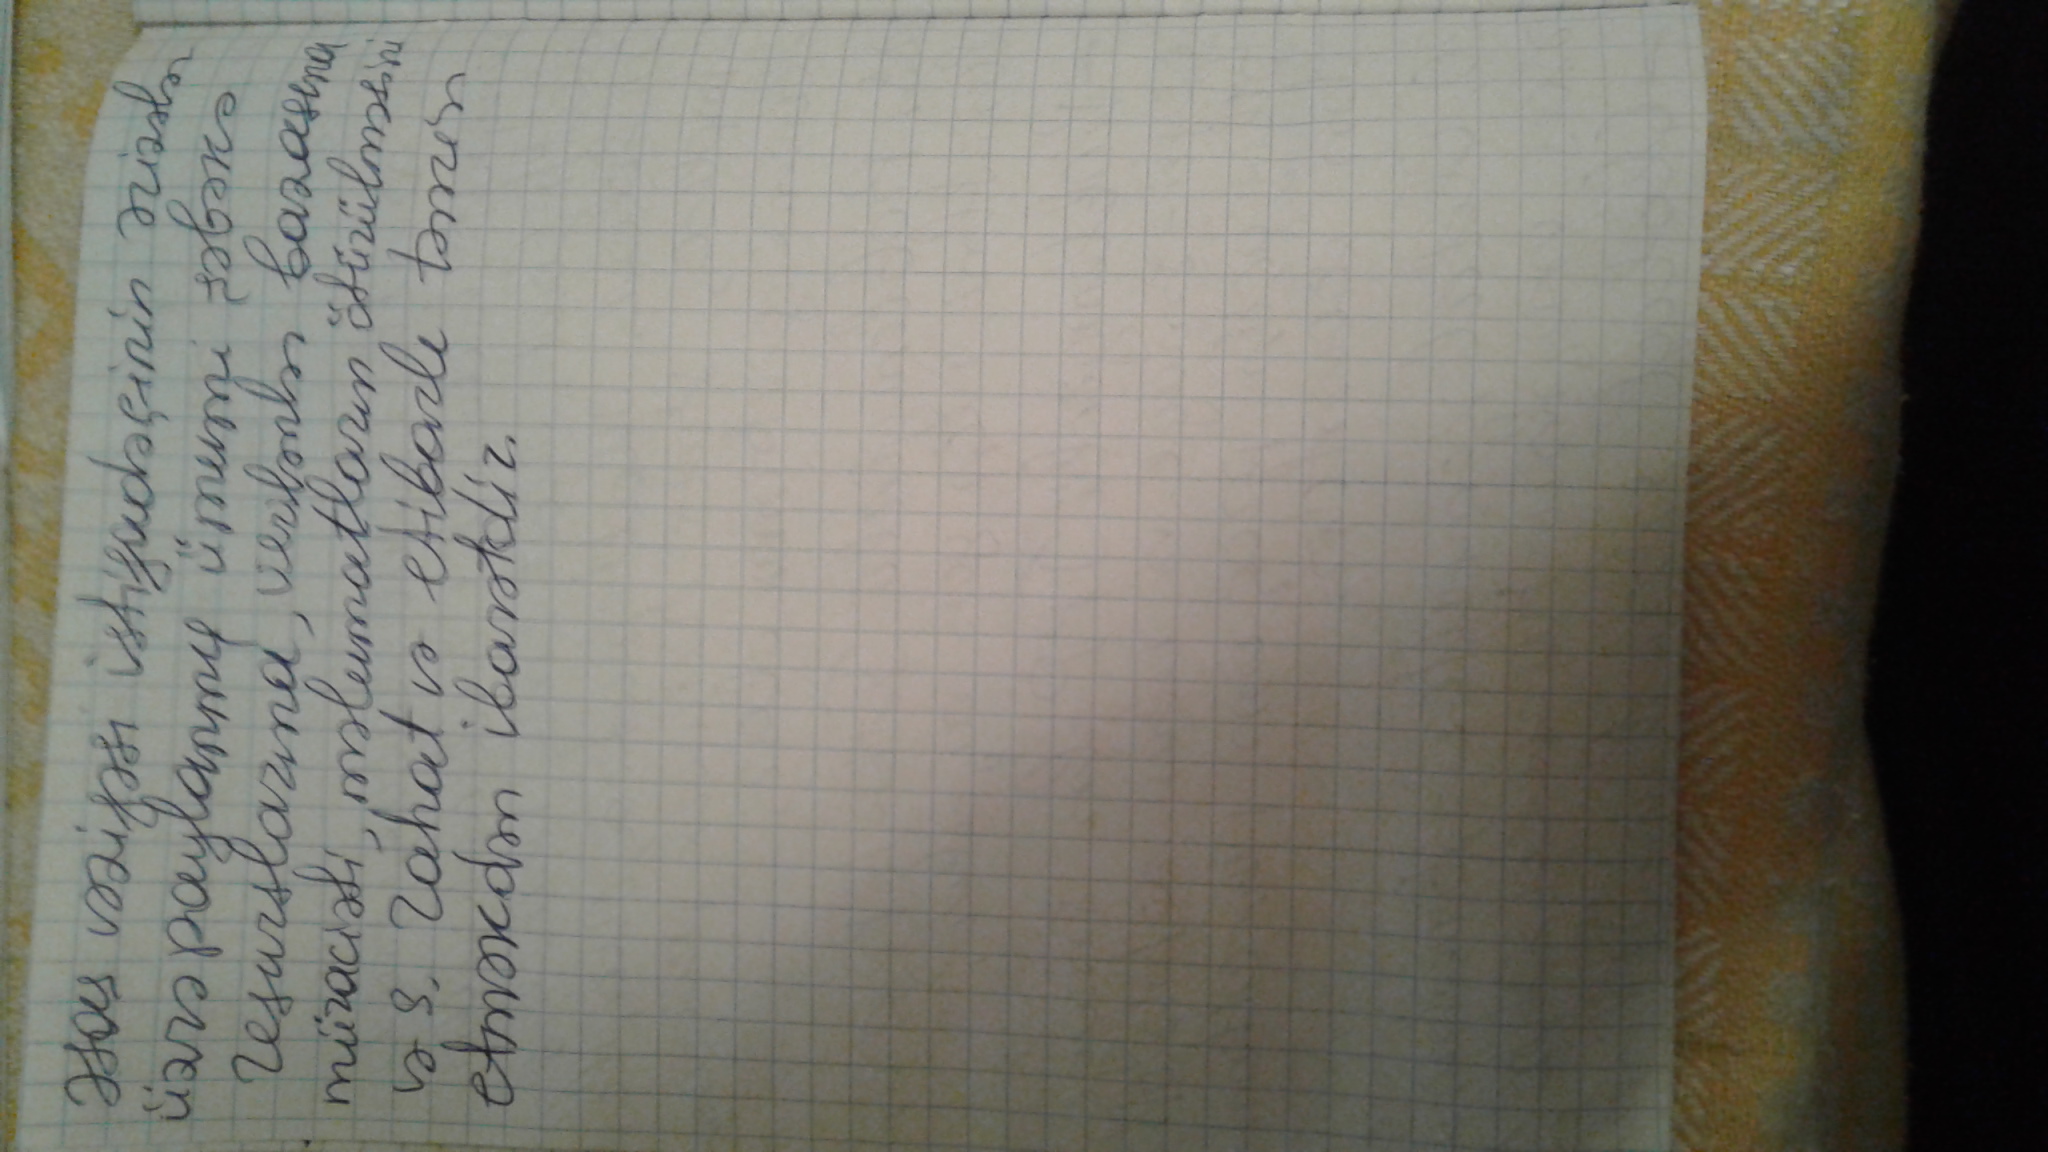 Əsas vəzifəsi istifadəçinin ərizələr
üzrə paylanmış ümumi şəbəkə
resurslarına, verilənlər bazasına
müraciəti, məlumatların ötürülməsini
və s. rahat və etibarlı təmin
etməkdən ibarətdir.